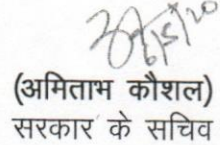 6/5/20
(अमिताभ कौशल)
सरकार के सचिव